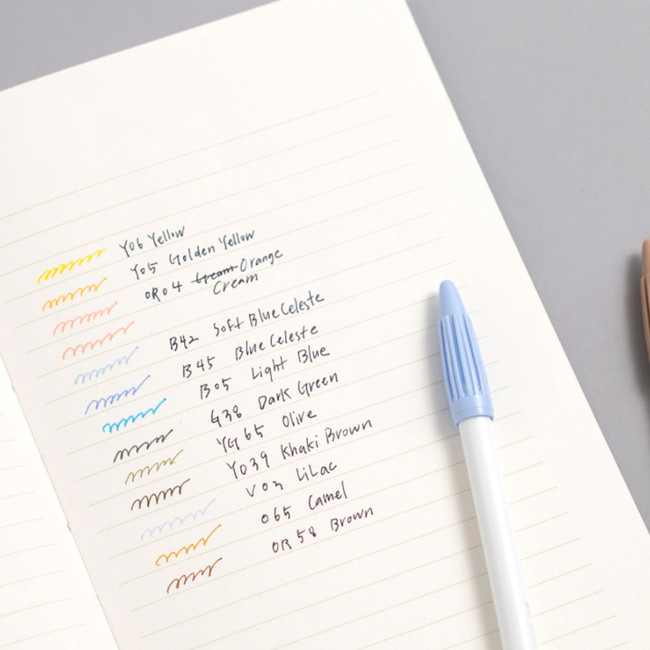 Y06 Yellow
Y05 Golden Yellow
OR04 Cream Orange
Cream
B42 Soft Blue Celeste
B45 Blue Celeste
B05 Light Blue
G38 Dark Green
YG65 Olive
YO39 Khaki Brown
V03 LiLac
O65 Camel
OR58 Brown